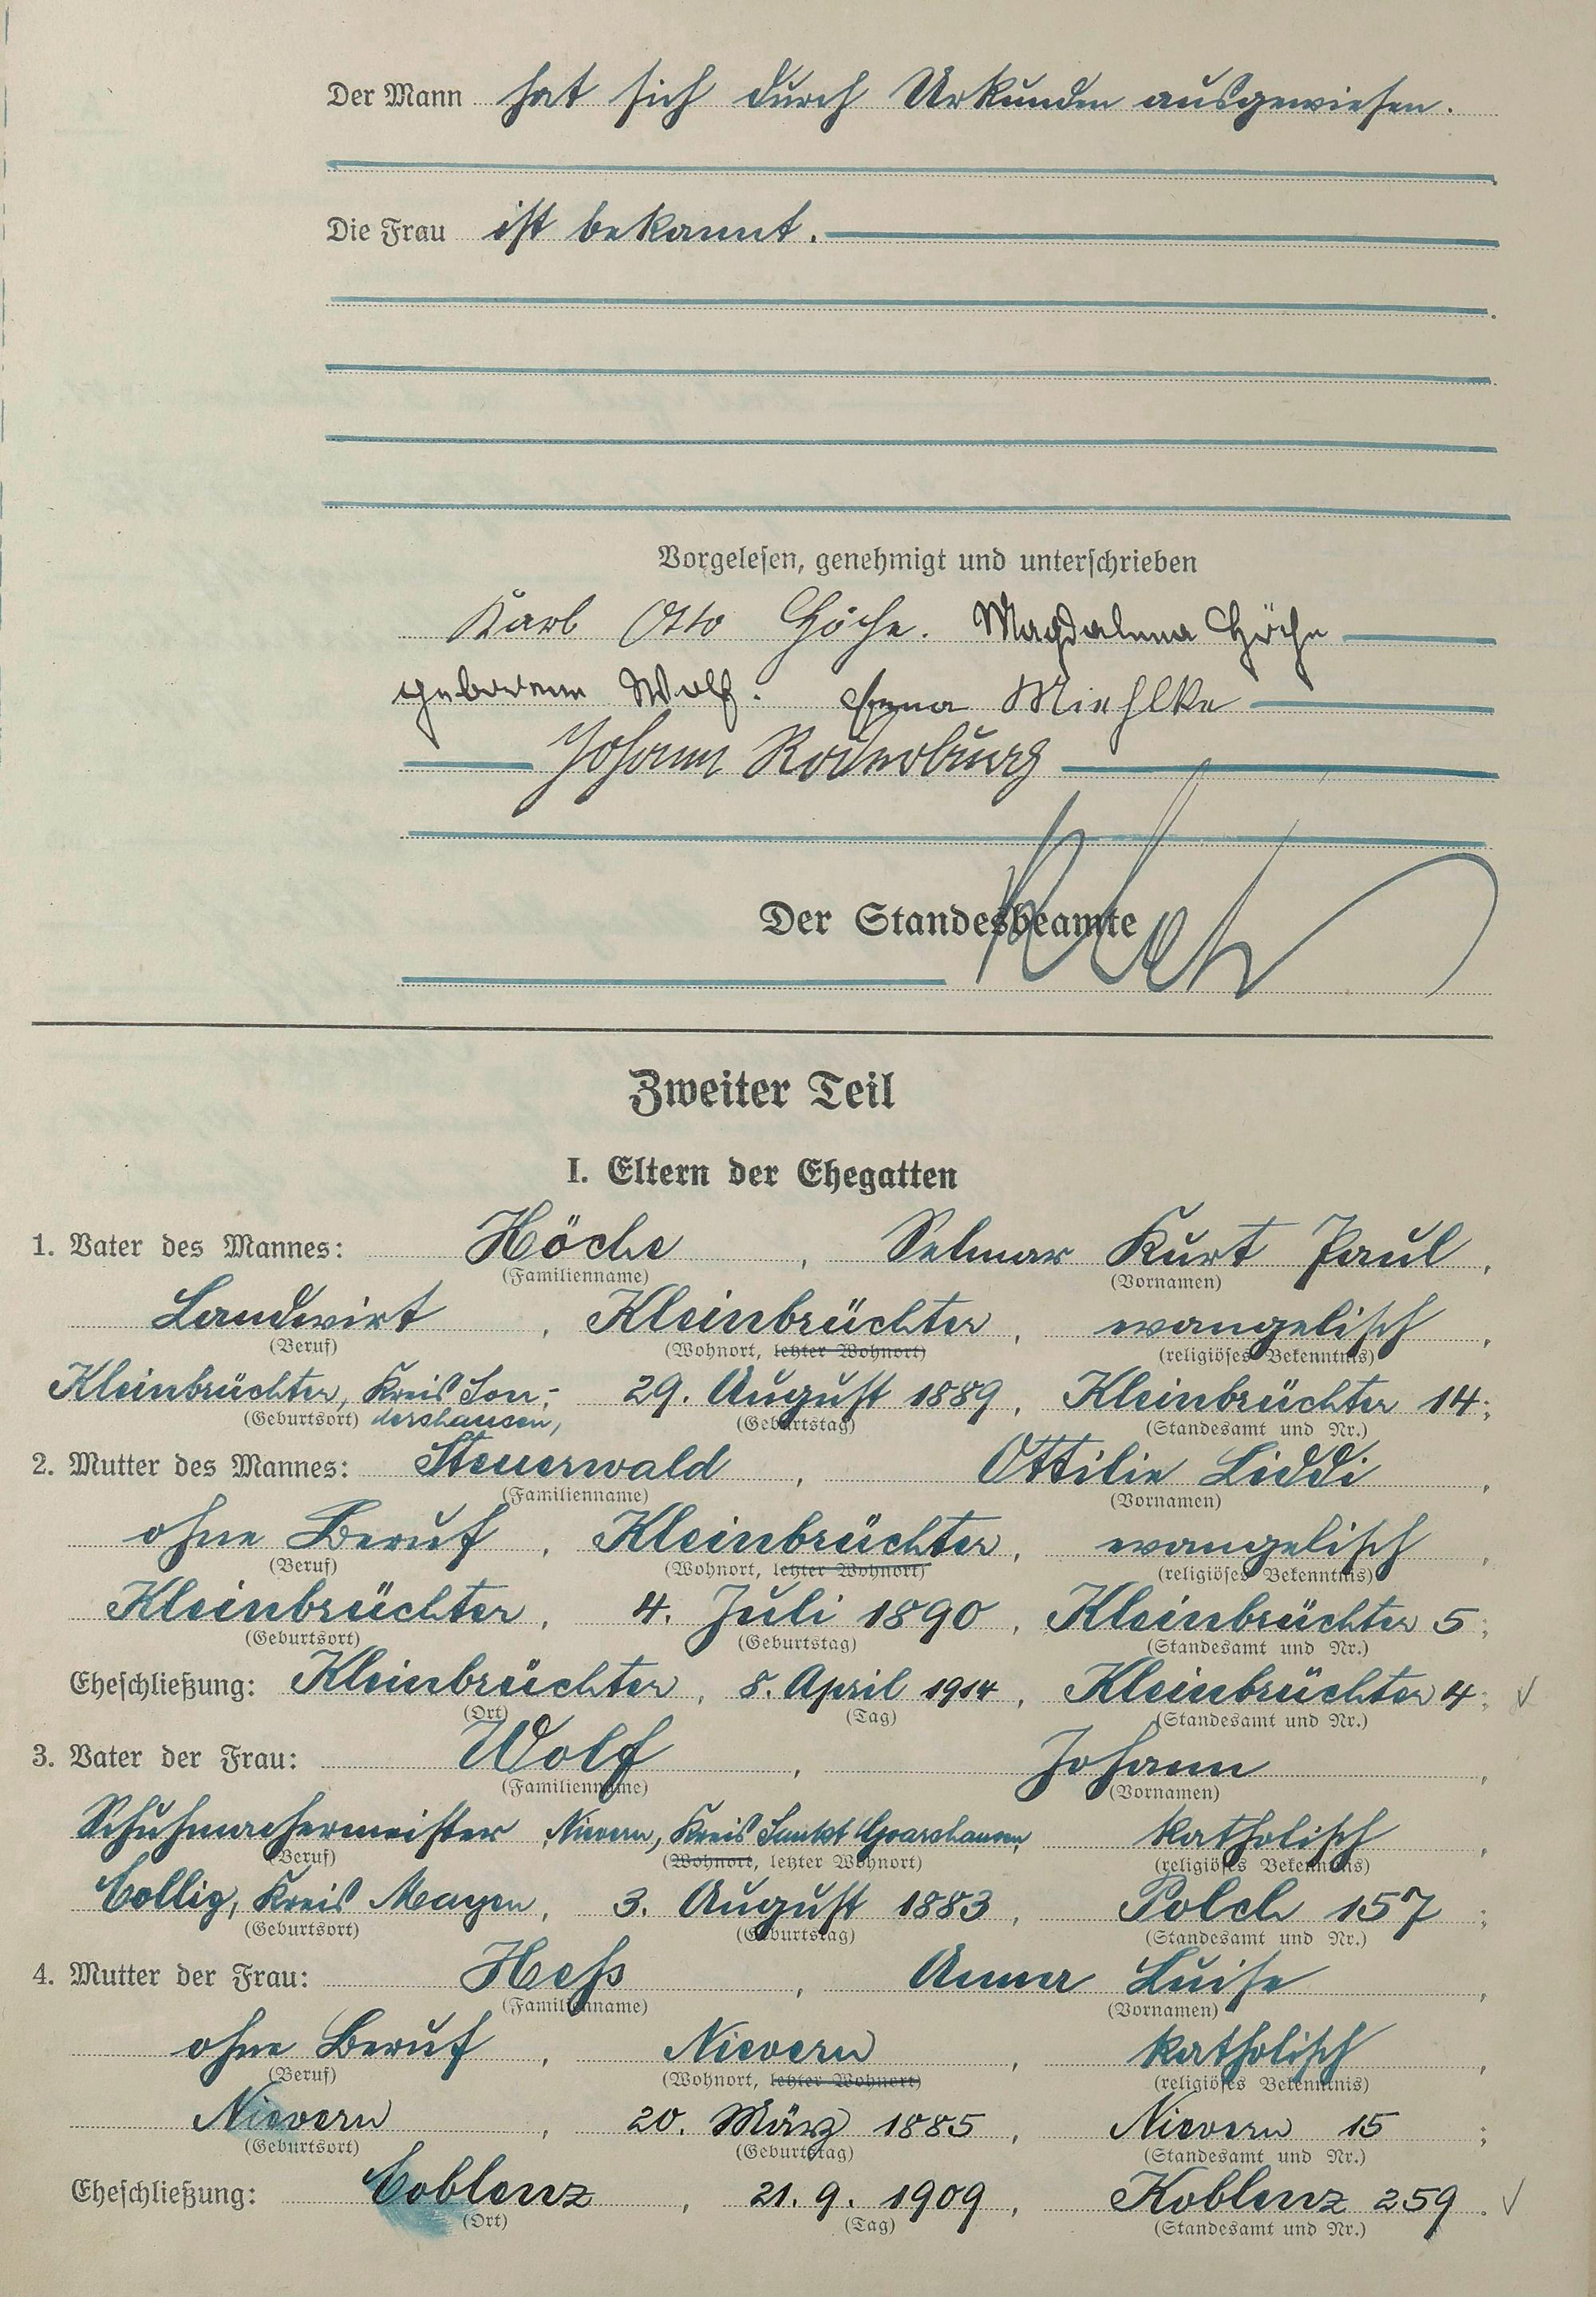 Der Mann hat sich durch Urkunden ausgewiesen.
Die Frau ist bekannt.
Vorgelesen, genehmigt und unterschrieben
Karl Otto Höche. Magdalena Höche
geborene Wolf. Miehlke
Johann
Der Standesbeamte
Zweiter Teil
I. Eltern der Ehegatten
1. Vater des Mannes: Höche, Selmar Kurt Paul,
(Familienname) (Vornamen)
Landwirt, Kleinbrüchter, evangelisch,
(Beruf) (Wohnort, letzter Wohnort) (religiöses Bekenntnis)
Kleinbrüchter, Kreis Son- 29. August 1889, Kleinbrüchter 14;
(Geburtsort) dershausen, (Geburtstag) (Standesamt und Nr.)
2. Mutter des Mannes: Steuerwald, Ottilie Liddi,
(Familienname) (Vornamen)
ohne Beruf, Kleinbrüchter, evangelisch,
(Beruf) (Wohnort, letzter Wohnort) (religiöses Bekenntnis)
Kleinbrüchter, 4. Juli 1890, Kleinbrüchter 5;
(Geburtsort) (Geburtstag) (Standesamt und Nr.)
Eheschließung: Kleinbrüchter, 5. April 1914, Kleinbrüchter 4;
(Ort) (Tag) (Standesamt und Nr.)
3. Vater der Frau: Wolf, Johann,
(Familienname) (Vornamen)
Schuhmachermeister, Nievern, Kreis Sankt Goarshausen, katholisch,
(Beruf) (Wohnort, letzter Wohnort) (religiöses Bekenntnis)
Collig, Kreis Mayen, 3. August 1883, Polch 157;
(Geburtsort) (Geburtstag) (Standesamt und Nr.)
4. Mutter der Frau: Heß, Anna Luise,
(Familienname) (Vornamen)
ohne Beruf, Nievern, katholisch,
(Beruf) (Wohnort, letzter Wohnort) (religiöses Bekenntnis)
Nievern, 20. März 1885, Nievern 15;
(Geburtsort) (Geburtstag) (Standesamt und Nr.)
Eheschließung: Coblenz, 21. 9. 1909, Koblenz 259.
(Ort) (Tag) (Standesamt und Nr.)